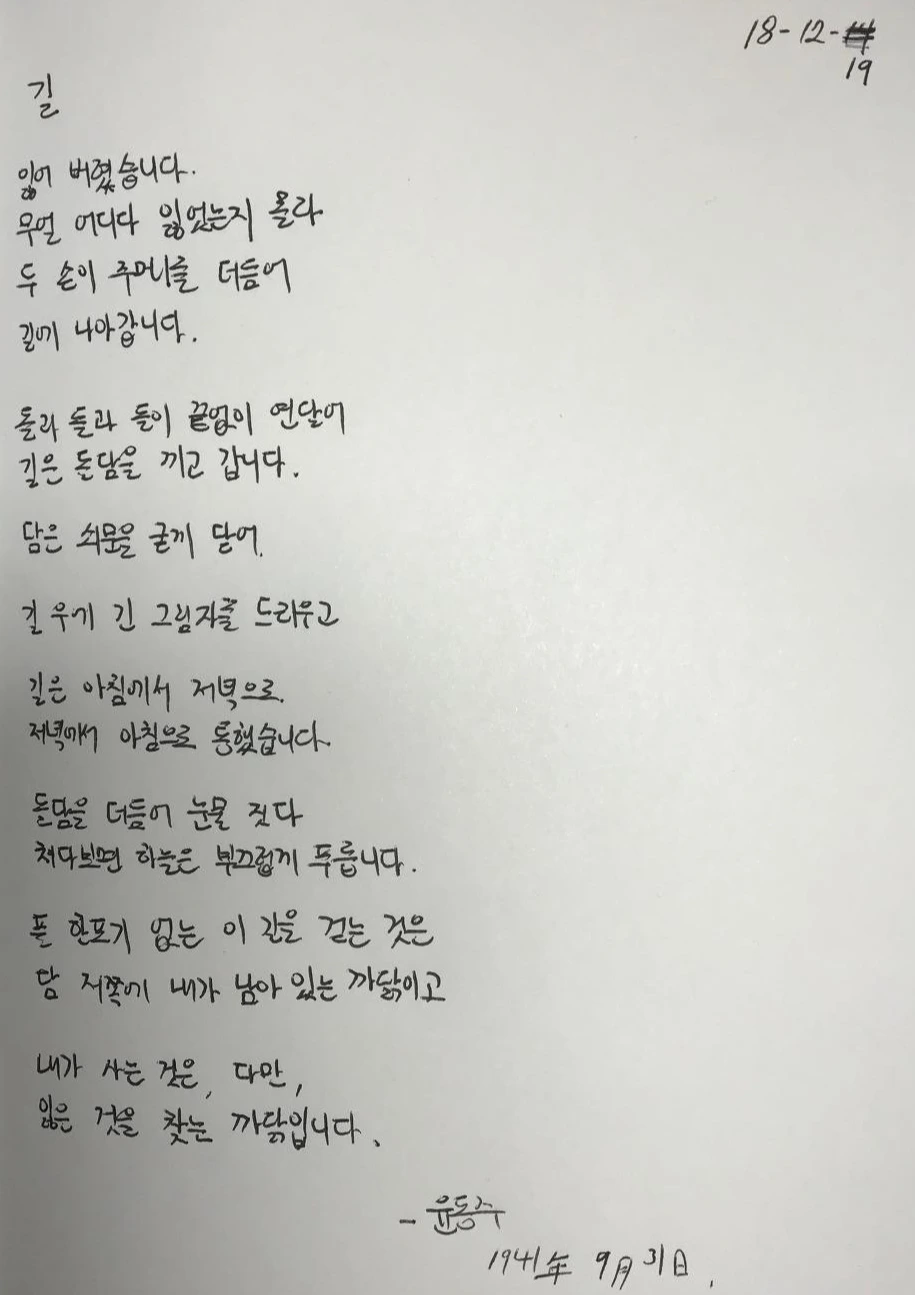 18-12-
19
길
잃어 버렸습니다.
무얼 어디다 잃었는지 몰라
두 손이 주머니를 더듬어
길에 나아갑니다.
돌과 돌과 돌이 끝없이 연달어
길은 돌담을 끼고 갑니다.
담은 쇠문을 굳게 닫어
길 우에 긴 그림자를 드리우고
길은 아침에서 저녁으로
저녁에서 아침으로 통했습니다.
돌담을 더듬어 눈물 짓다
쳐다보면 하늘은 부끄럽게 푸릅니다.
풀 한포기 없는 이 길을 걷는 것은
담 저쪽에 내가 남아 있는 까닭이고
내가 사는 것은, 다만,
잃은 것을 찾는 까닭입니다.
- 윤동주
1941年 9月 31日.